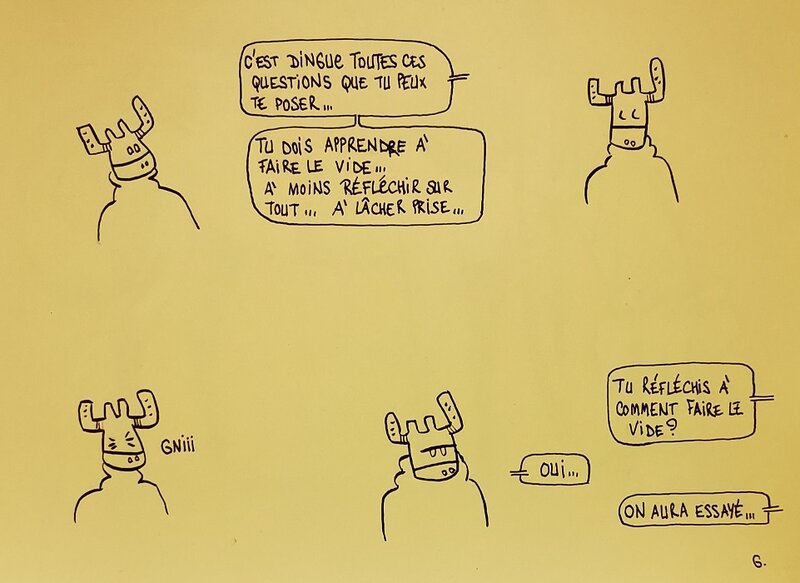 C'EST DINGUE TOUTES CES
QUESTIONS QUE TU PEUX
TE POSER...
TU DOIS APPRENDRE À
FAIRE LE VIDE...
À MOINS RÉFLÉCHIR SUR
TOUT... À LÂCHER PRISE...
GNiii
TU RÉFLÉCHIS À
COMMENT FAIRE LE
VIDE?
OUi...
ON AURA ESSAYÉ...
6.